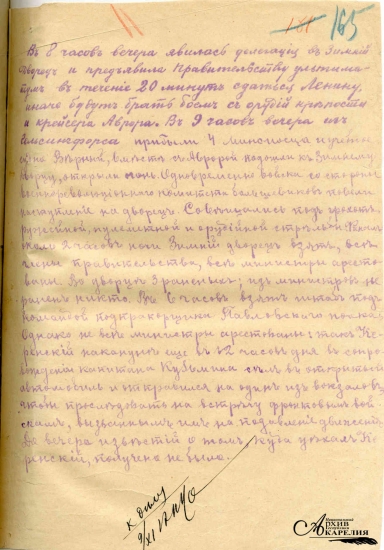 161 165
Въ 8 часовъ вечера явилась делегация въ Зимний
дворецъ и предъявила Правительству ультима-
тумъ въ течение 20 минутъ сдаться Ленину,
иначе будутъ брать боемъ съ крепости
и крейсера Аврора. Въ 9 часовъ вечера изъ
Гельсингфорса прибыли 4 миноносца и
вместе съ Авророй подошли къ Зимнему
дворцу, открыли огонь. Одновременно войска со стороны
военно-революционного комитета большевиковъ повели
наступление на дворецъ. Совещались подъ грохотъ
ружейной, пулеметной и стрельбы. После
2 часовъ ночи Зимний дворецъ взятъ, все
члены правительства, все министры аресто-
ваны. Во дворце 3 раненыхъ; изъ министровъ не
раненъ никто. Въ 6 часовъ взятъ штабъ подъ
командой подпрапорщика Павловского полка.
Однако не все министры арестованы: такъ Ке-
ренский накануне еще въ 12 часовъ дня въ сопро-
вождении капитана Кузьмина селъ въ открытый
автомобиль и отправился на одинъ изъ вокзаловъ,
чтобы проследовать на встречу фронтовымъ вой-
скамъ, вызваннымъ имъ на подавление движения.
До вечера известий о томъ куда уехалъ Ке-
ренский, получено не было.
к делу
9/XI 17
Национальный
АРХИВ
Республики
КАРЕЛИЯ